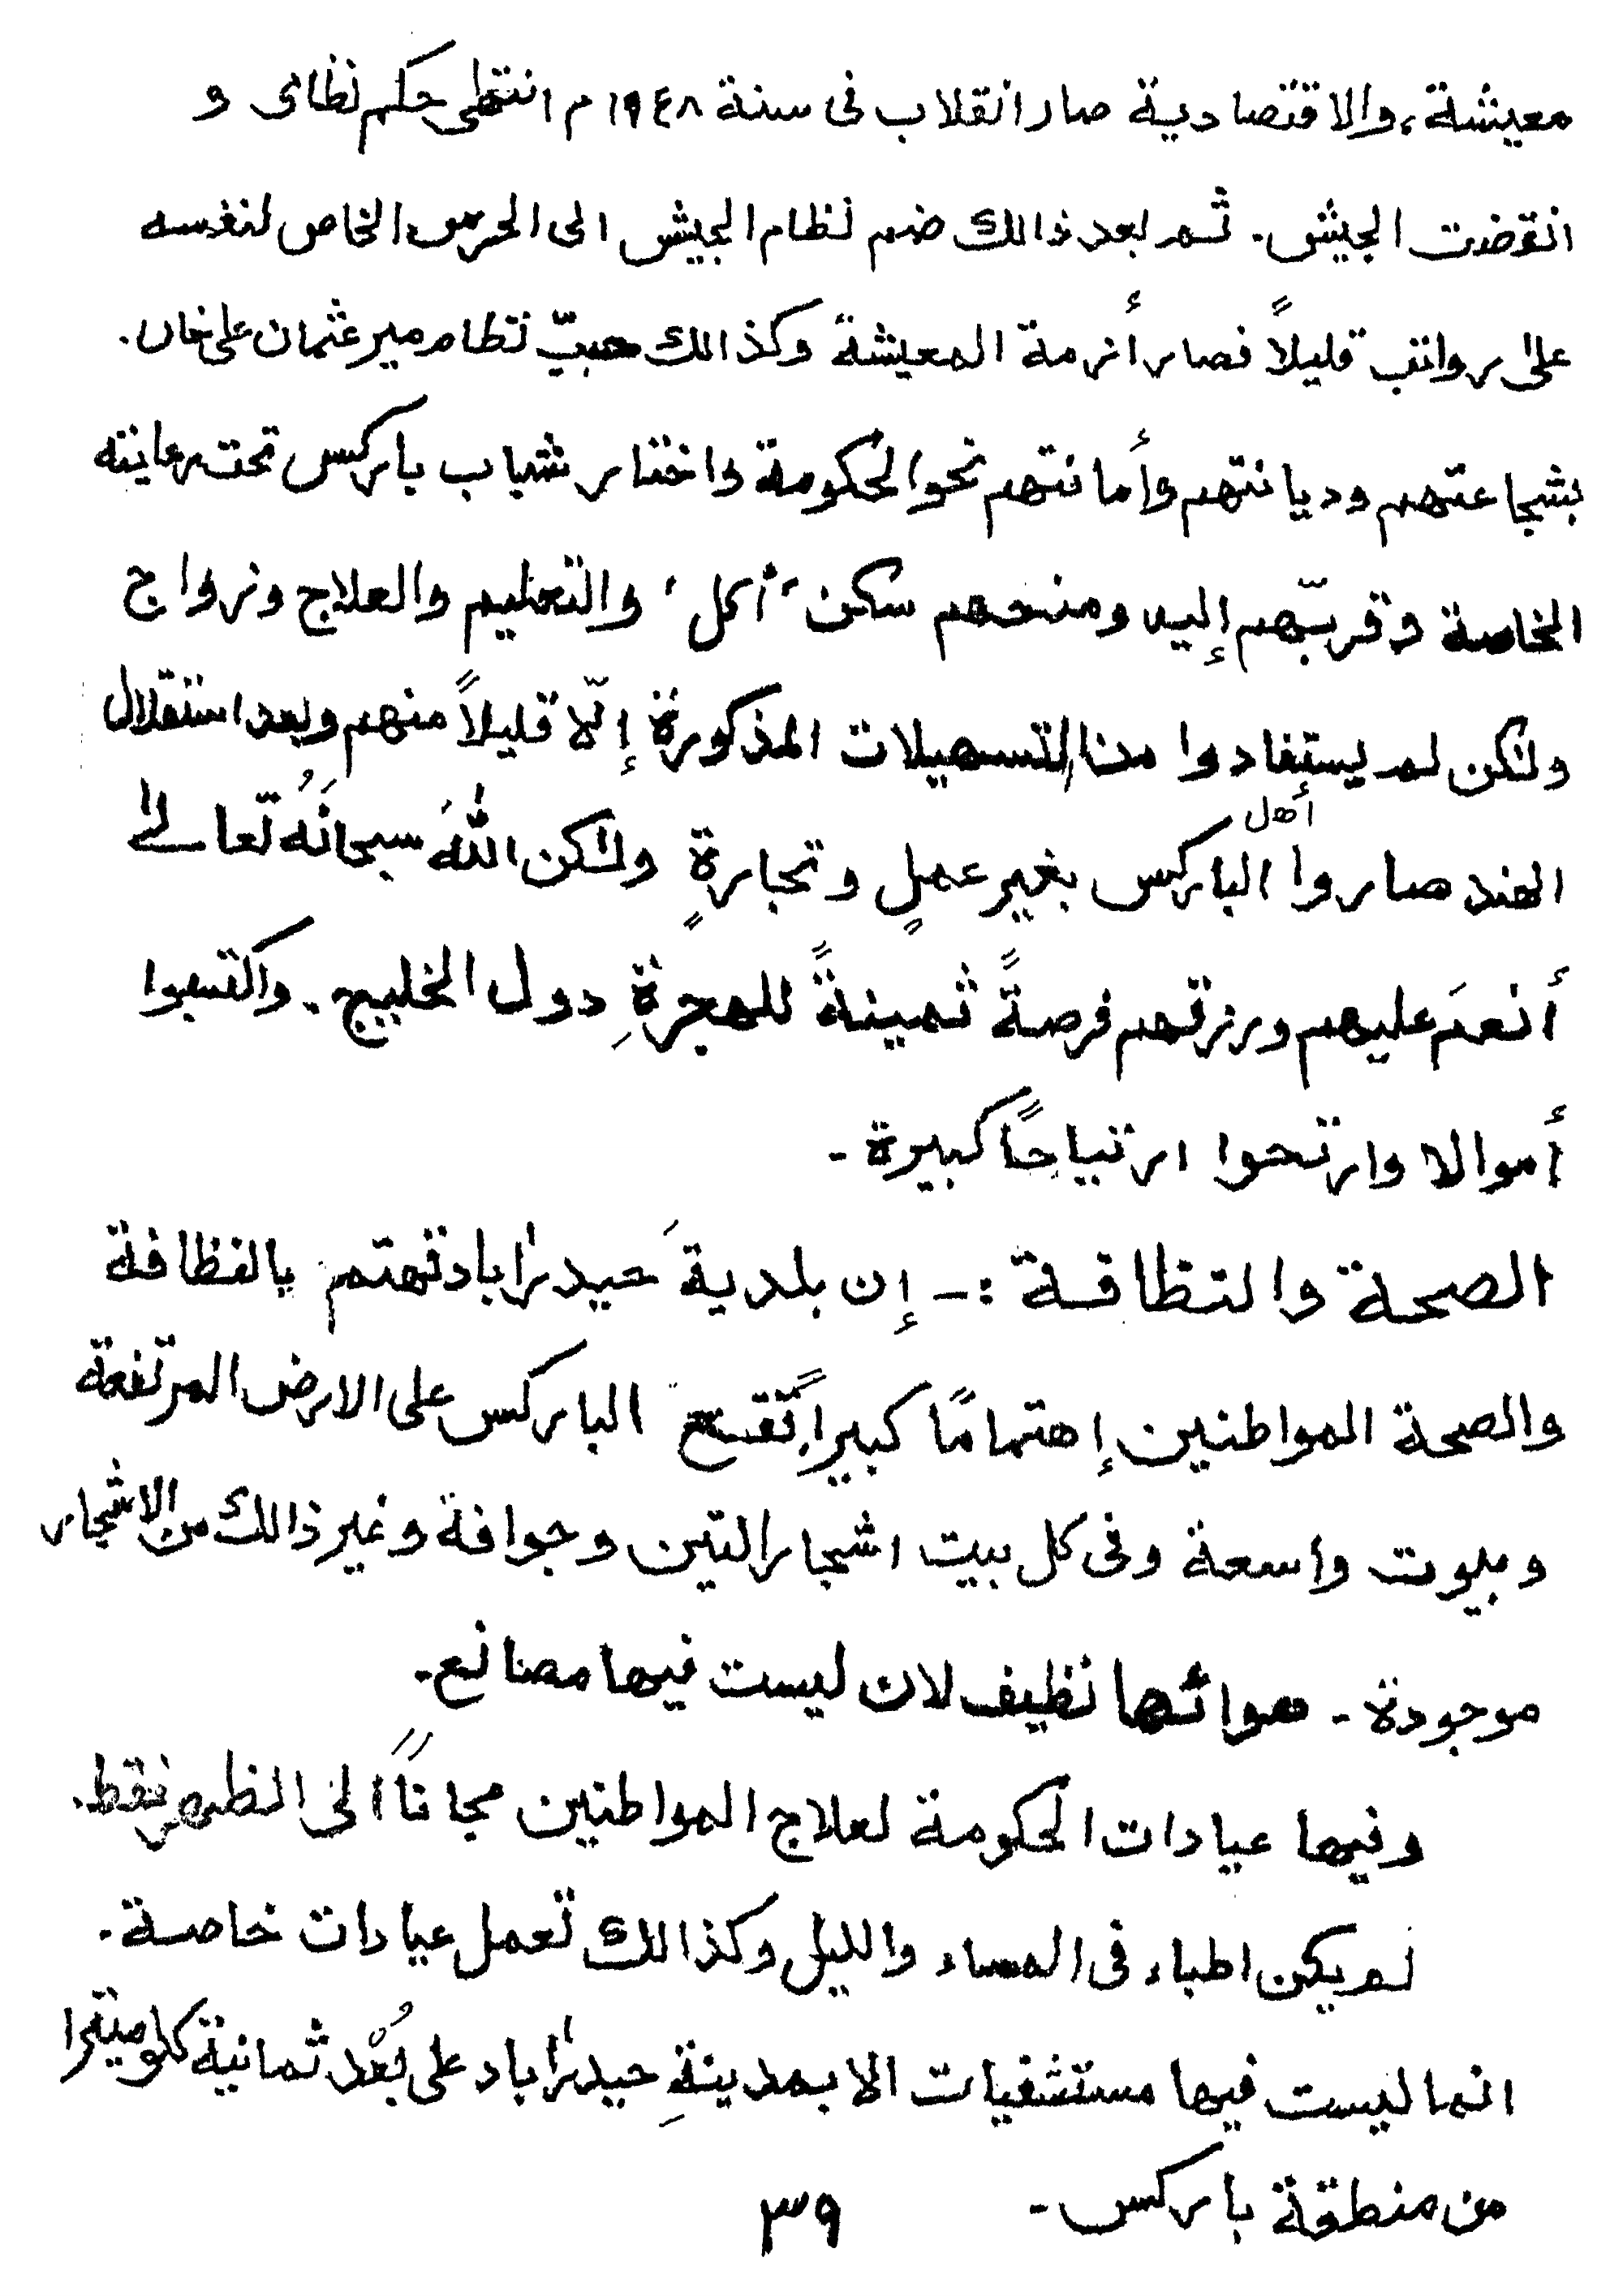 معيشة، والاقتصادية صار انقلاب فى سنة ١٩٤٨ م انتهى حكم نظامى و
انقضت الجيش. ثم بعد ذالك ضم نظام الجيش الى الحرس الخاص لنفسه
على رواتب قليلاً فصار أزمة المعيشة وكذالك حبّ نظام مير عثمان على خان.
بشجاعتهم وديانتهم وأمانتهم نحو الحكومة واختار شباب باركس تحت رعايته
الخاصة وقربّهم إليه ومنحهم سكن ،أكل، والتعليم والعلاج وزواج
ولكن لم يستفادوا من التسهيلات المذكورة إلّا قليلاً منهم وبعد استقلال
الهند صاروا أهل الباركس بغير عملٍ وتجارةٍ ولكن اللهَ سبحانَهُ تعالىٰ
أنعمَ عليهم ورزقهم فرصةً ثمينةً للهجرةِ دول الخليج. واكتسبوا
أموالا وارتحوا ارتياحًا كبيرة -
الصحة والنظافة :- إن بلديةَ حيدرٰاباد تهتم بالنظافة
والصحة المواطنين إهتمامًا كبيراً، تقع الباركس على الارض المرتفعة
وبيوت واسعة وفى كل بيت اشجار التين وجوافة وغير ذالك من الاشجار
موجودة - هوائها نظيف لان ليست فيها مصانع -
وفيها عيادات الحكومة لعلاج المواطنين مجاناً الى الظهر فقط.
لم يكن اطباء فى المساء والليل وكذالك تعمل عيادات خاصة.
انما ليست فيها مستشفيات الا بمدينةِ حيدرٰاباد على بُعْد ثمانية كلوميترا
من منطقة باركس -
٣٩